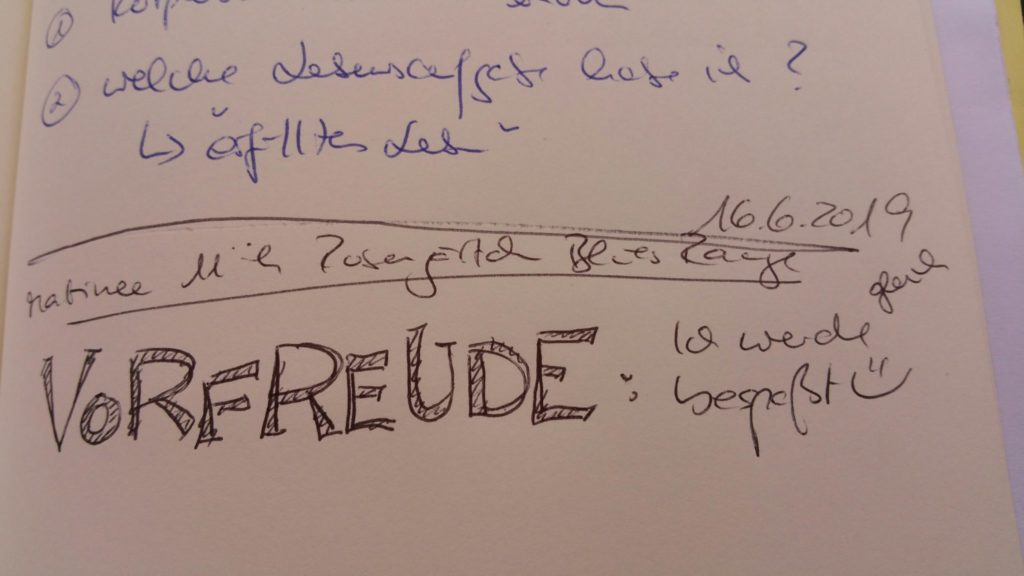 ①
② welche Lebensaufgabe habe ich ?
↳ erfülltes Leben
16.6.2019
Matinee 11 Uhr Rosengärtchen Blues
VORFREUDE : Ich werde gerne
begrüßt